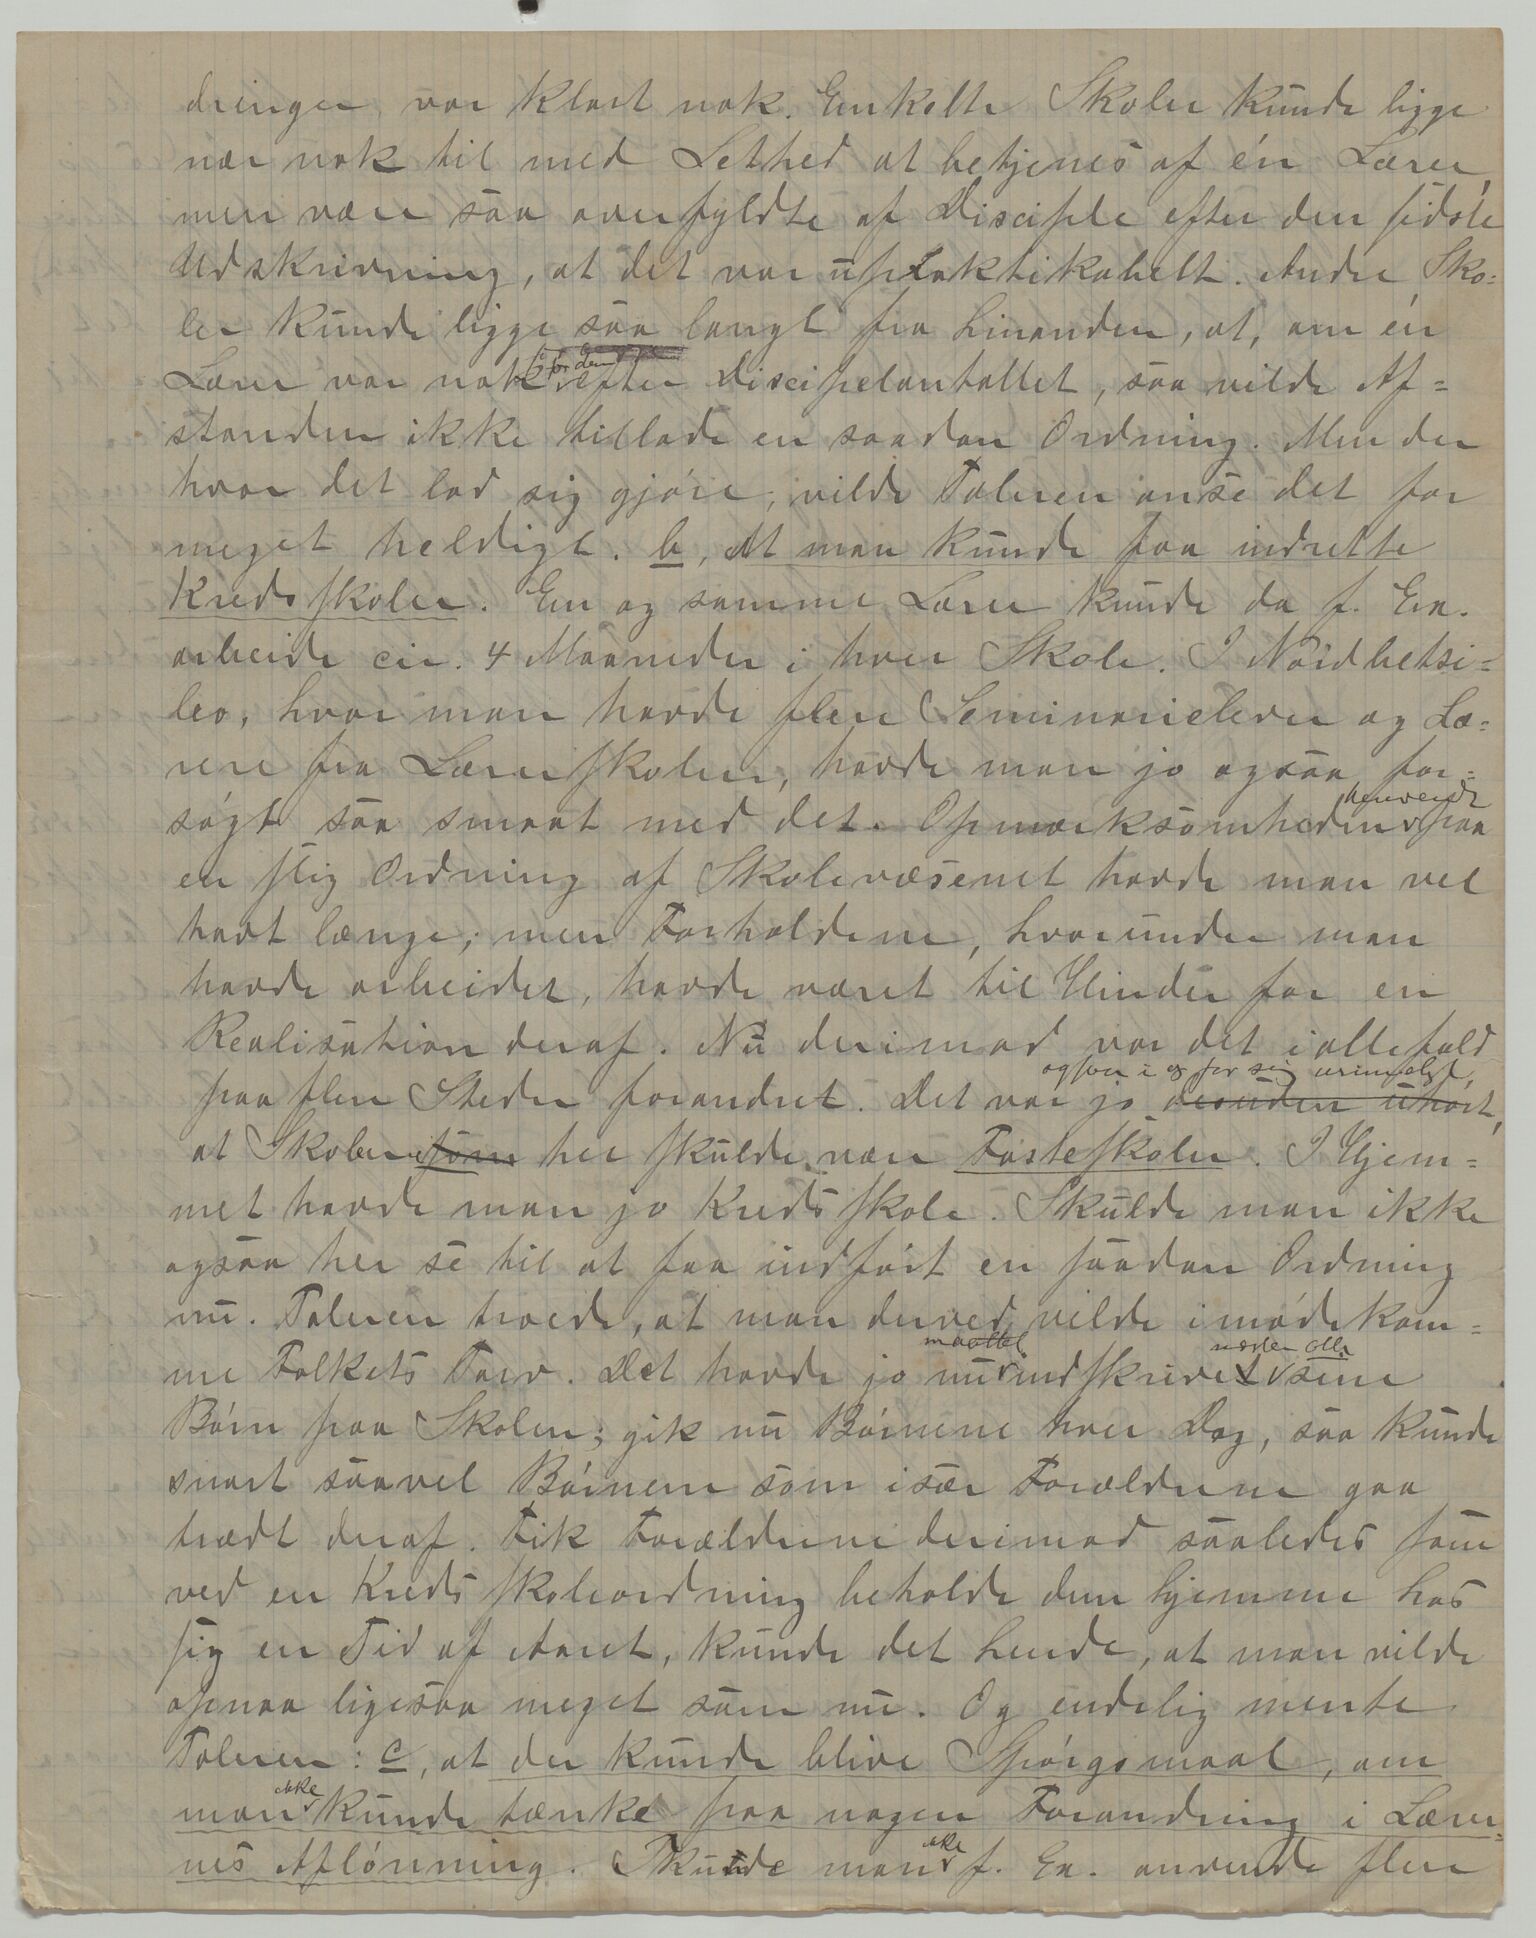 dringer var klart nok. Enkelte Skoler kunde ligge
nær nok til med Lethed at betjenes af én Lærer,
men være saa overfyldte af Disciple efter den sidste
Udskrivning, at det var upraktikabelt. Andre Sko=
ler kunde ligge saa langt fra hinanden, at, om én
Lærer var nok for dem efter Discipelantallet, saa vilde Af=
standen ikke tillade en saadan Ordning. Men der
hvor det lod sig gjøre, vilde Taleren anse det for
meget heldigt. b, At man kunde faa indrette
Kredsskoler. En og samme Lærer kunde da f. Ex.
arbeide cir. 4 Maaneder i hver Skole. I Nordbetsi=
leo, hvor man havde flere Seminarielever og Læ=
rere fra Lærerskolen, havde man jo ogsaa for=
søgt saa smaat med det. Opmærksomheden henvendt paa
en slig Ordning af Skolevæsenet havde man vel
havt længe; men Forholdene, hvorunder man
havde arbeidet, havde været til Hinder for en
Realisation deraf. Nu derimod var det iallefald
paa flere Steder forandret. Det var jo desuden uhørt, ogsaa i og for sig urimeligt,
at Skolerne som her skulde være Fasteskoler. I Hjem=
met havde man jo Kredsskole. Skulde man ikke
ogsaa her se til at faa indført en saadan Ordning
nu. Taleren troede, at man derved vilde imødekom=
me Folkets Tarv. Det havde jo nu maattet indskrive næsten alle sine
Børn paa Skolen; gik nu Børnene hver Dag, saa kunde
snart saavel Børnene som især Forældrene gaa
trædt deraf. Fik Forældrene derimod saaledes som
ved en Kredsskoleordning beholde dem hjemme hos
sig en Tid af Aaret, kunde det hende, at man vilde
opnaa ligesaa meget som nu. Og endelig mente
Taleren: c, at der kunde blive Spørgsmaal, om
man ikke kunde tænke paa nogen Forandring i Lærer=
nes Aflønning. Kunde man ikke f. Ex. anvende flere